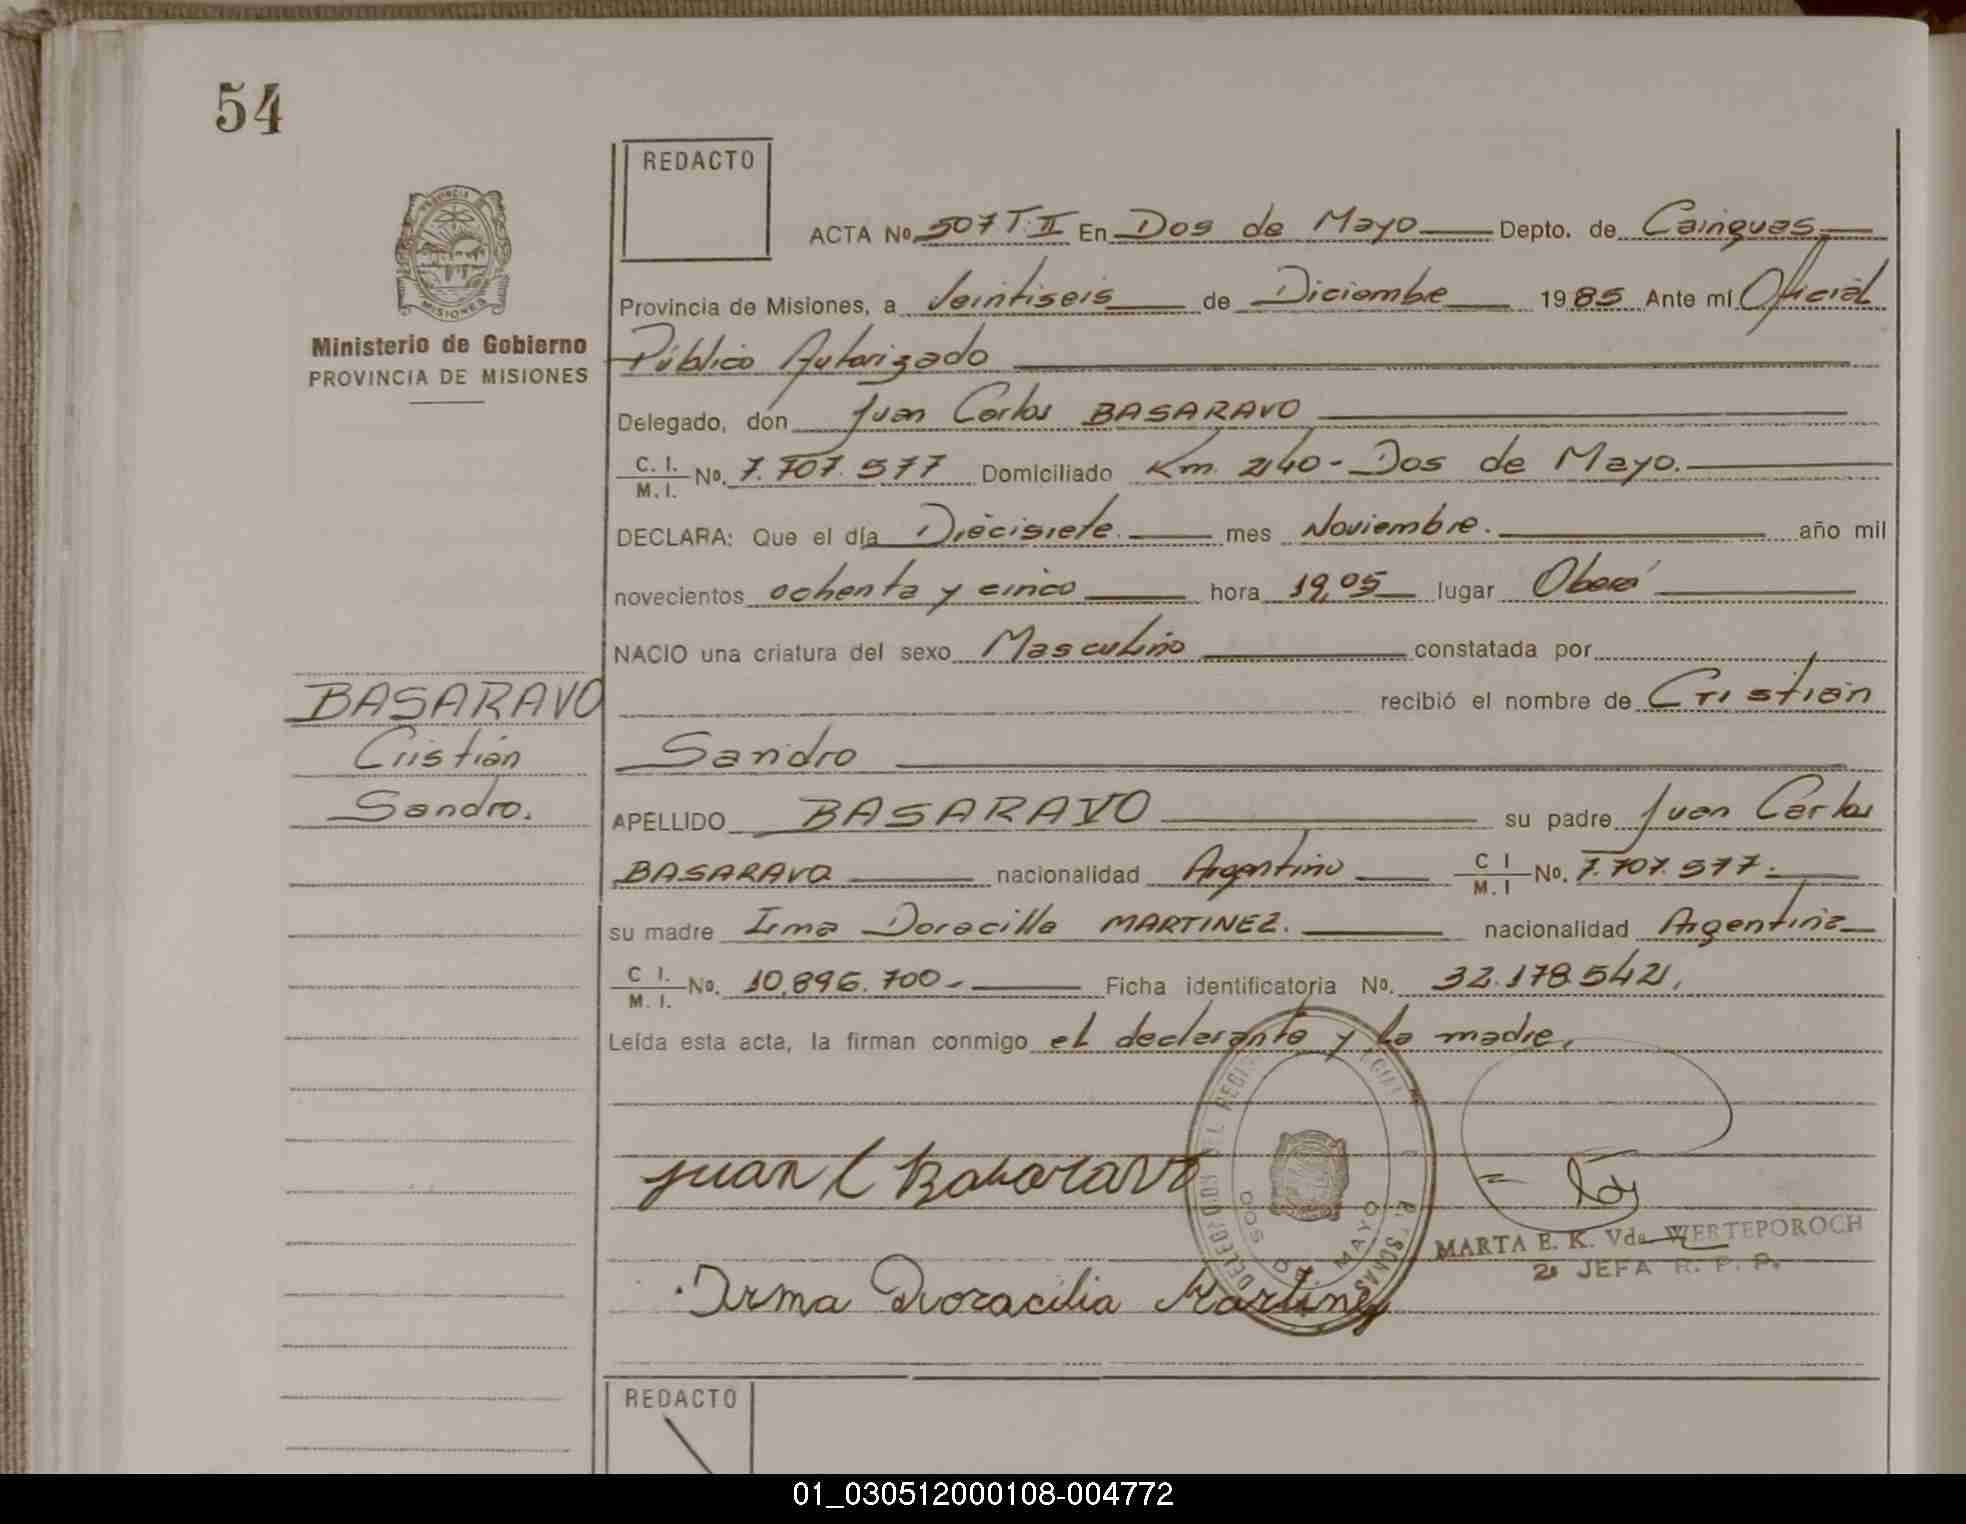 54
REDACTO
PROVINCIA
MISIONES
Ministerio de Gobierno
PROVINCIA DE MISIONES
ACTA Nº 507 T. II En Dos de Mayo Depto. de Cainguas
Provincia de Misiones, a Veintiseis de Diciembre 1985 Ante mí Oficial
Público Autorizado
Delegado, don Juan Carlos BASARAVO
C. I. / M. I. Nº. 7.707.577 Domiciliado Km. 240 - Dos de Mayo.
DECLARA: Que el día Diécisiete. mes Noviembre. año mil
novecientos ochenta y cinco hora 19,05 lugar Oberá
NACIO una criatura del sexo Masculino constatada por
recibió el nombre de Cristián
Sandro
BASARAVO
Cristián
Sandro.
APELLIDO BASARAVO su padre Juan Carlos
BASARAVO nacionalidad Argentino C I / M. I Nº. 7.707.577.-
su madre Irma Doracilia MARTINEZ. nacionalidad Argentina
C I. / M. I. Nº. 10.896.700.- Ficha identificatoria Nº. 32.178.542,
Leída esta acta, la firman conmigo el declarante y la madre.
Juan C Basaravo
Irma Doracilia Martinez
DELEGACION DEL REGI PERSONAS
DOS DE MAYO
MARTA E. K. Vda. WERTEPOROCH
JEFA R. P. P.
REDACTO
01_030512000108-004772